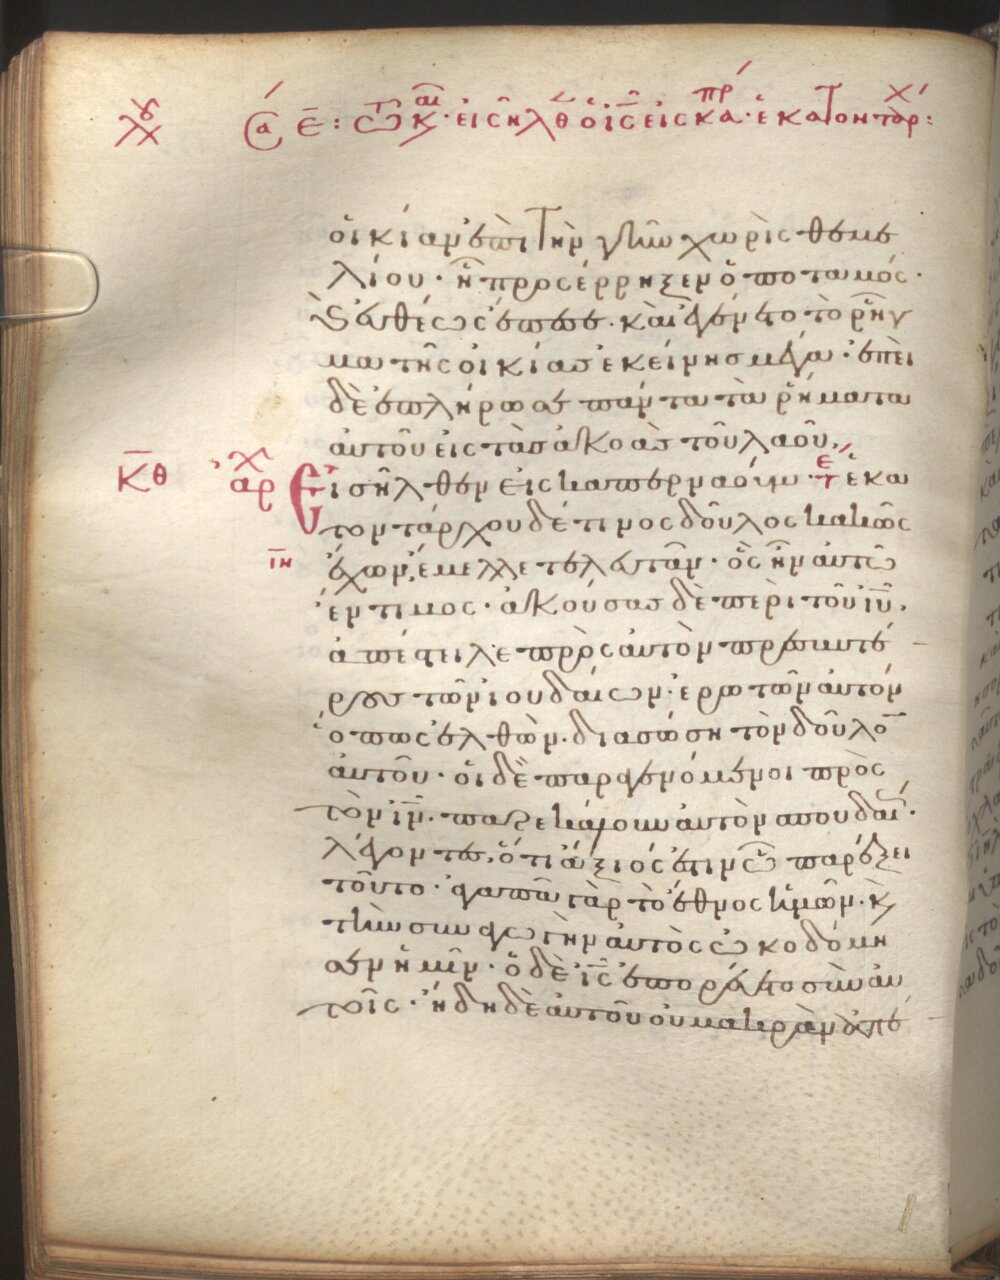 σα ε: τῶ κ· εἰσῆλθ ὁ ις εἰς κα· ἑκατοντάρχ:
οἰκίαν ἐπὶ τὴν γῆν χωρὶς θεμε
λίου· ἧ προσέρρηξεν ὁ ποταμός·
καὶ εὐθέως ἔπεσε· καὶ ἐγένετο τὸ ῥῆγ
μα τῆς οἰκίασ ἐκείνησ μέγα· ἐπεὶ
δὲ ἐπλήρωσε πάντα τὰ ῥήματα
αὐτοῦ εἰς τὰσ ἀκοὰσ τοῦ λαοῦ,
κθ ἀρχ Εἰσῆλθεν εἰς καπερναούμ· ἑκα
τοντάρχου δέ τινος δοῦλος κακῶς
ιν ἔχων, ἔμελλε τελευτᾶν· ὃς ἦν αὐτῶ
ἔντιμος· ἀκούσασ δὲ περὶ τοῦ ιυ,
ἀπέστειλε πρὸς αὐτὸν πρεσβυτέ
ρους τῶν ιουδαίων· ἐρωτῶν αὐτόν
ὅπως ἐλθὼν· διασώση τὸν δοῦλο̄
αὐτοῦ· οἱ δὲ παραγενόμενοι πρὸς
τὸν ιν· παρεκάλουν αὐτὸν σπουδαί·
λέγοντες, ὅτι ἄξιός ἐστιν ὧ παρέξει
τοῦτο· ἀγαπᾶ γὰρ τὸ ἔθνος ἡμῶν· κ
τὴν συναγωγὴν αὐτὸς ὠκοδόμη
σεν ἡμῖν· ὁ δὲ ις ἐπορεύετο σὺν αὐ
τοῖς· ἤδη δὲ αὐτοῦ οὐ μακρὰν ἀπέ